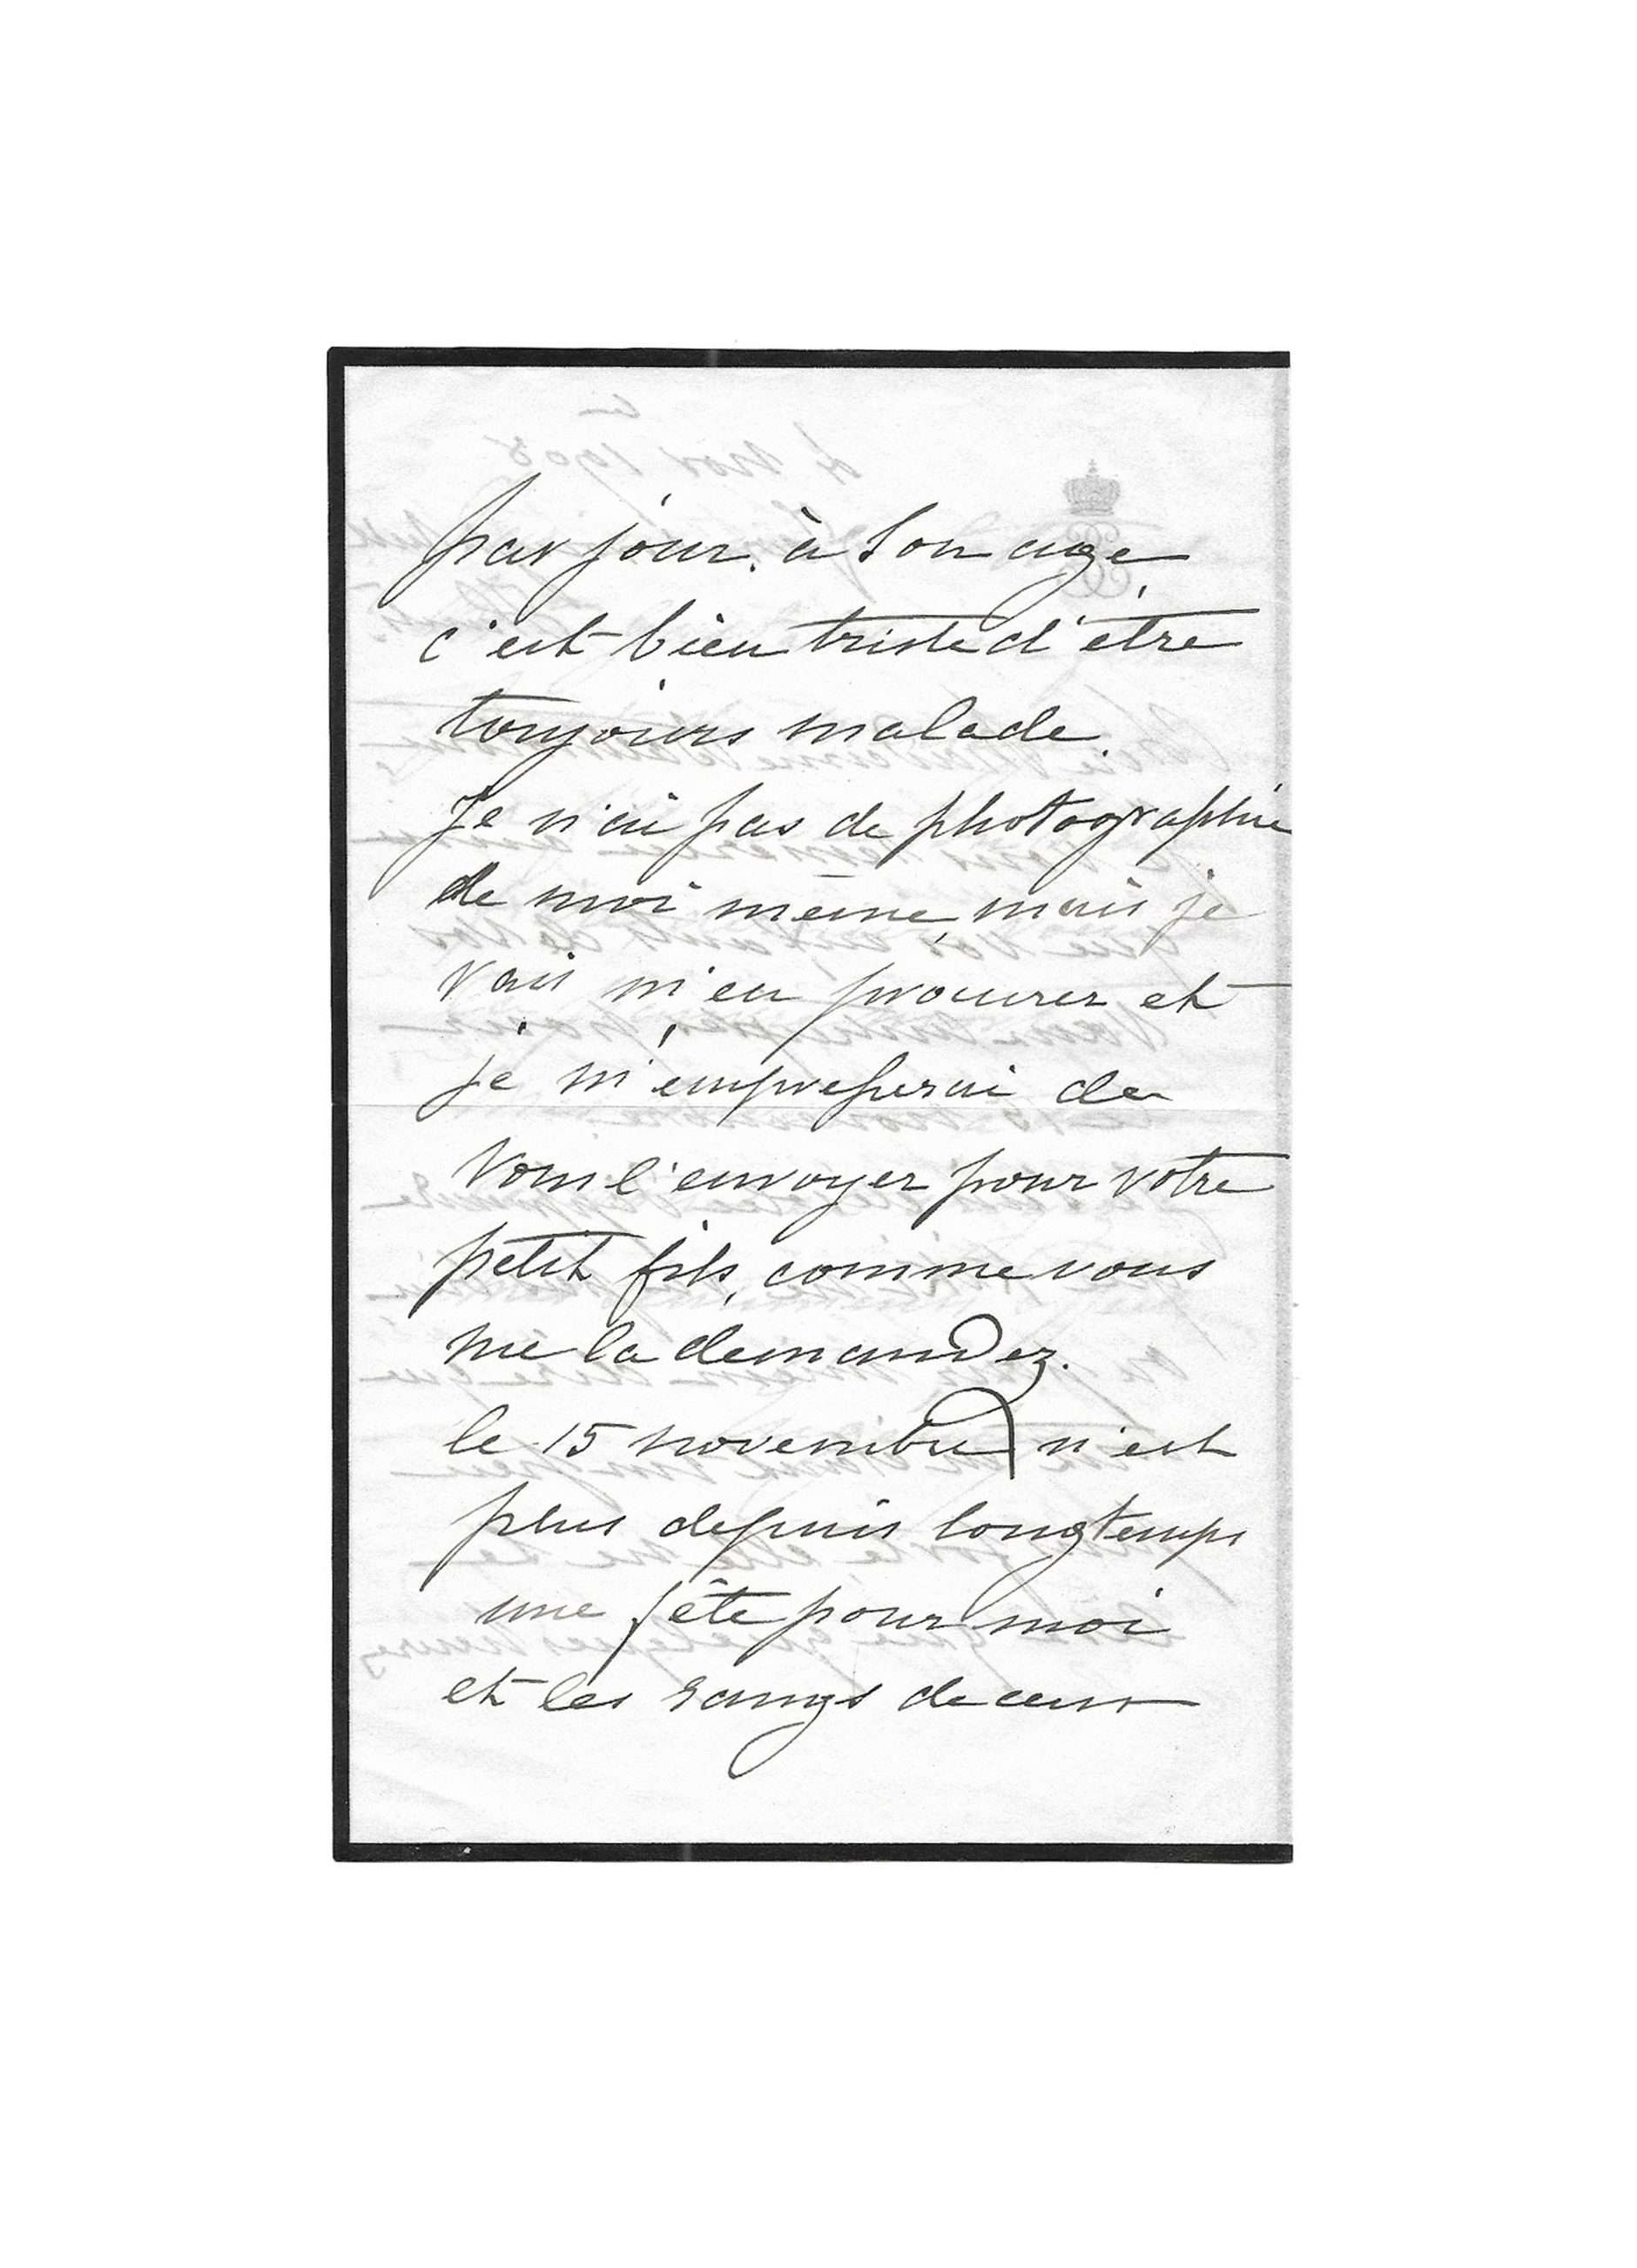 par jour. à son age,
c'est bien triste d'être
toujours malade.
Je n'ai pas de photographie
de moi même, mais je
vais m'en procurer et
je m'empresserai de
vous l'envoyer pour votre
petit fils, comme vous
me la demandez.
le 15 novembre n'est
plus depuis longtemps
une fête pour moi
et les rangs de ceux